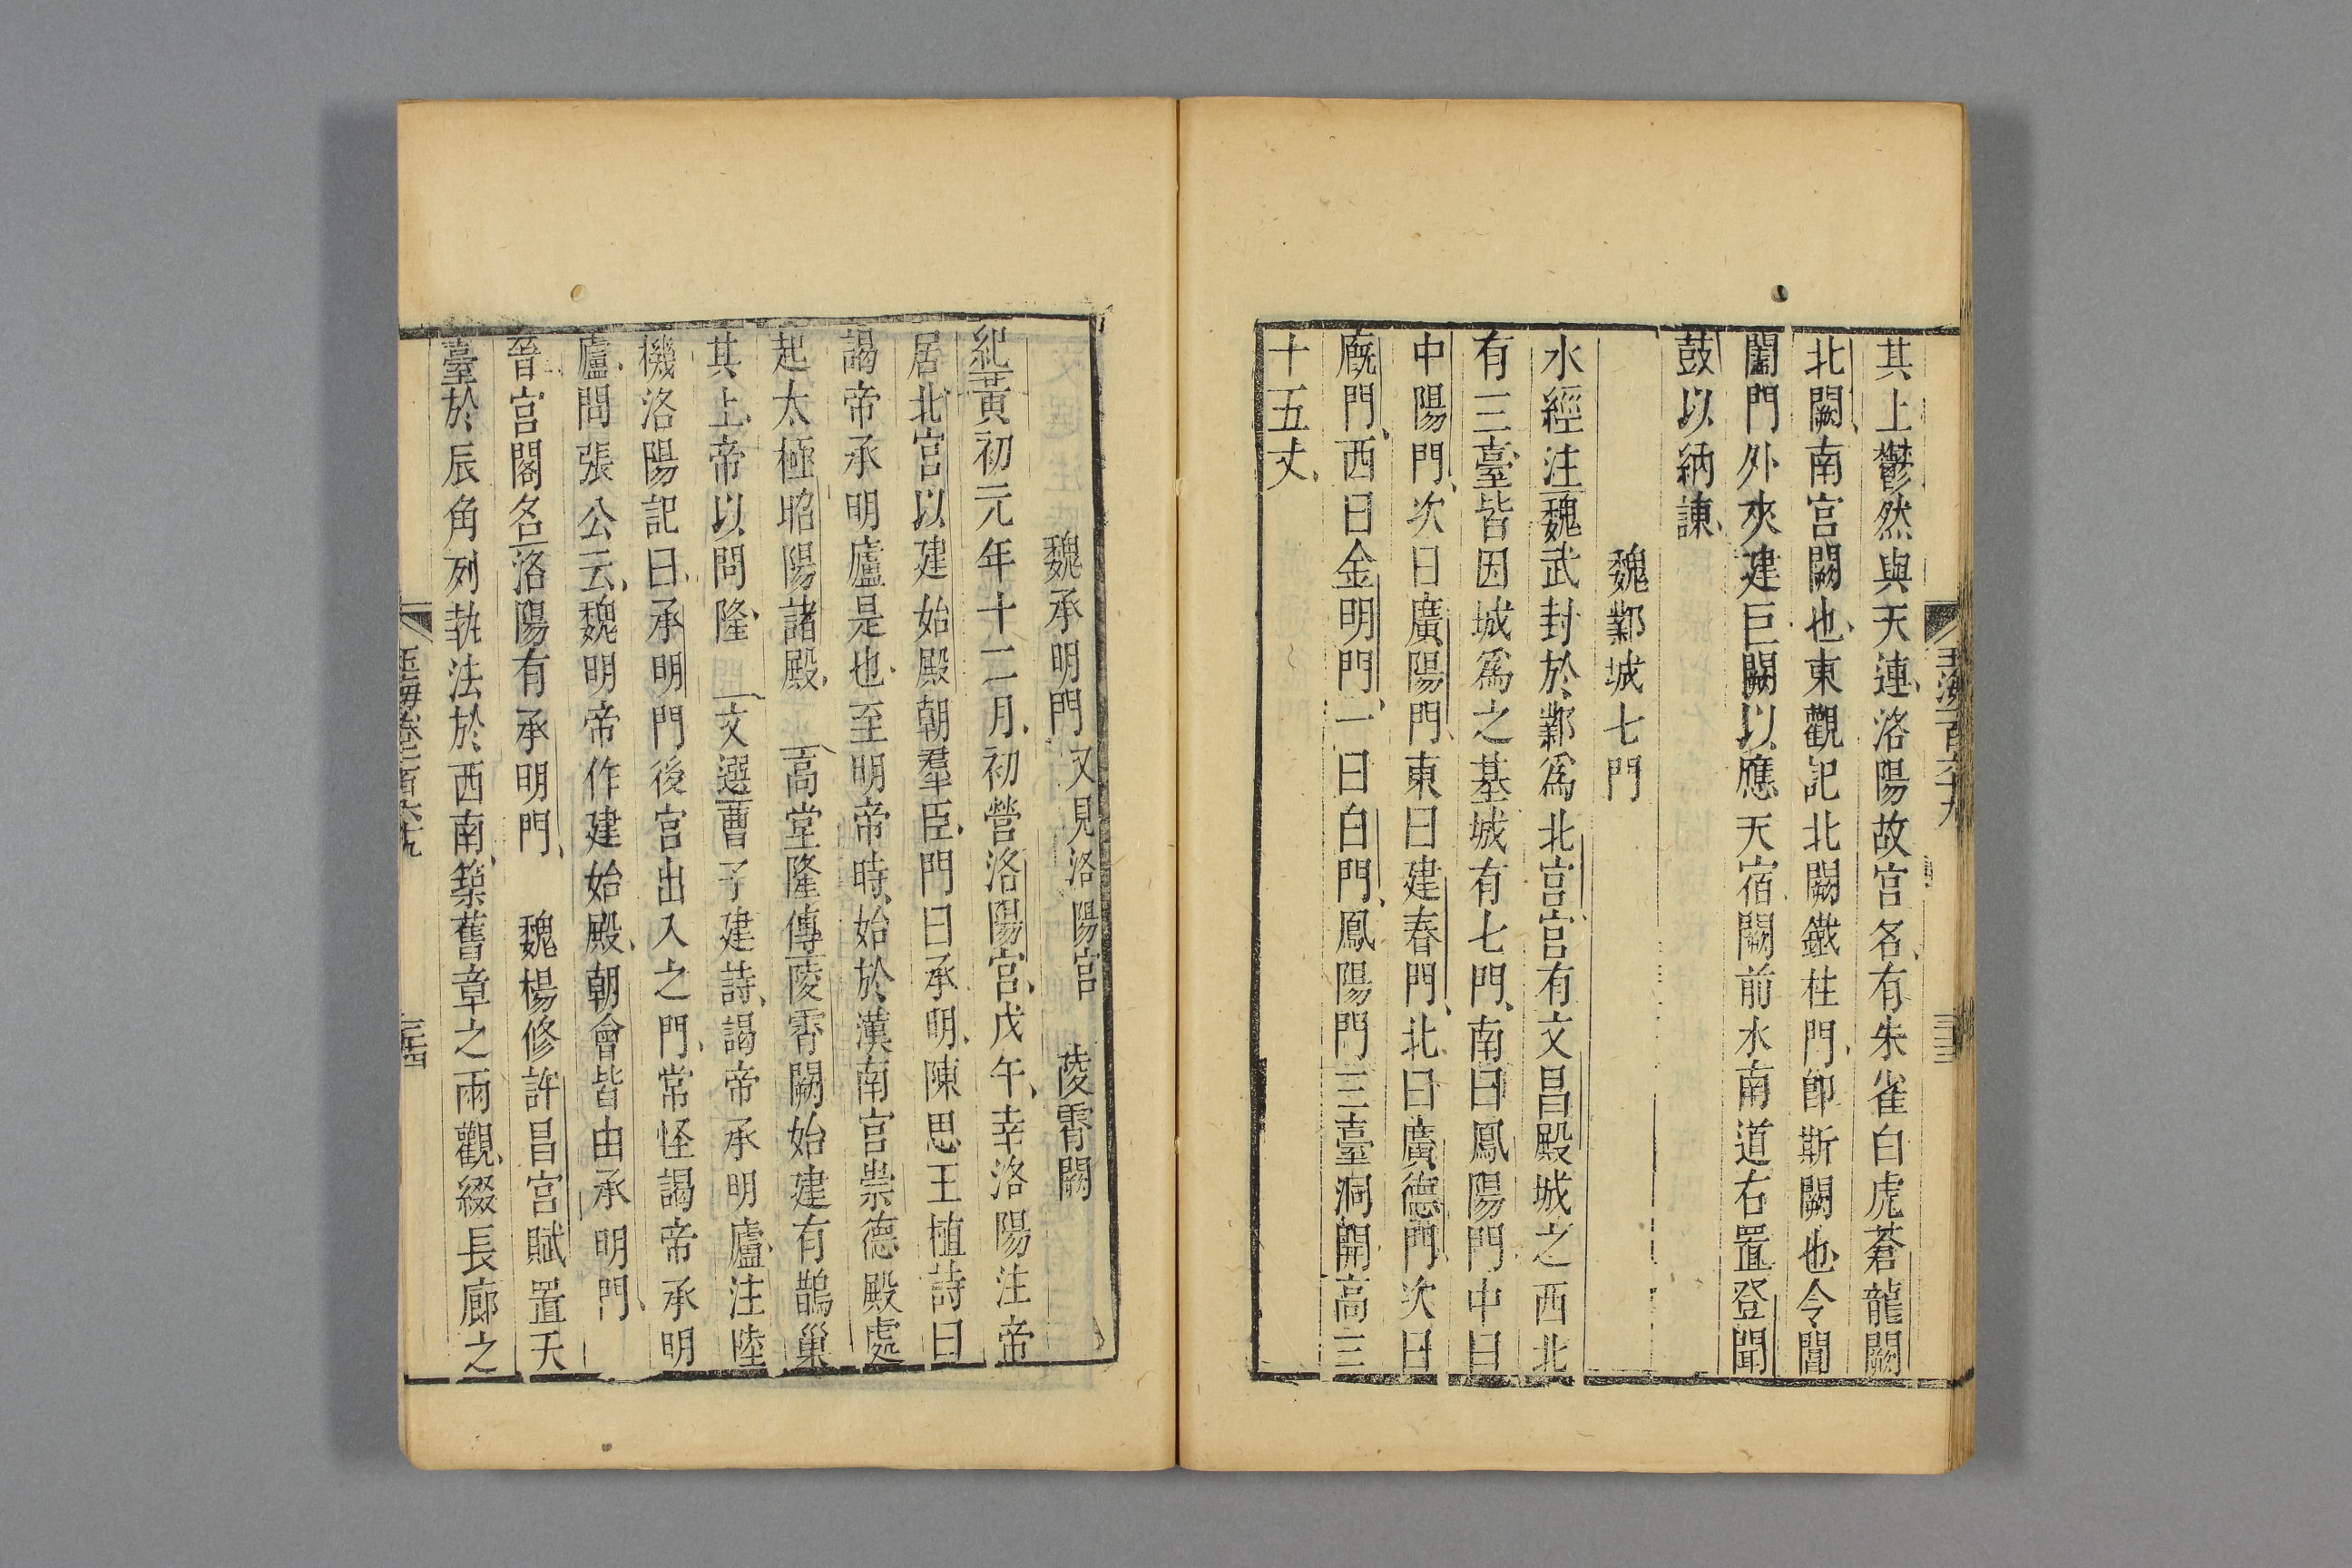 其上鬱然與天連洛陽故宮名有朱雀白虎蒼龍闕
北闕南宮闕也東觀記北闕鐵柱門卽斯闕也今閶
闔門外夾建巨闕以應天宿闕前水南道右置登聞
鼓以納諫
魏鄴城七門
水經注魏武封於鄴爲北宮宮有文昌殿城之西北
有三臺皆因城爲之基城有七門南曰鳳陽門中曰
中陽門次曰廣陽門東曰建春門北曰廣德門次曰
廐門西曰金明門一曰白門鳳陽門三臺洞開高三
十五丈
魏承明門又見洛陽宮 陵霄闕
紀黃初元年十二月初營洛陽宮戊午幸洛陽注帝
居北宮以建始殿朝羣臣門曰承明陳思王植詩曰
謁帝承明廬是也至明帝時始於漢南宮崇德殿處
起太極昭陽諸殿 高堂隆傳陵霄闕始建有鵲巢
其上帝以問隆 文選曹子建詩謁帝承明廬注陸
機洛陽記曰承明門後宮出入之門常怪謁帝承明
廬問張公云魏明帝作建始殿朝會皆由承明門
晉宮閣名洛陽有承明門 魏楊修許昌宮賦置天
臺於辰角列執法於西南築舊章之兩觀綴長廊之